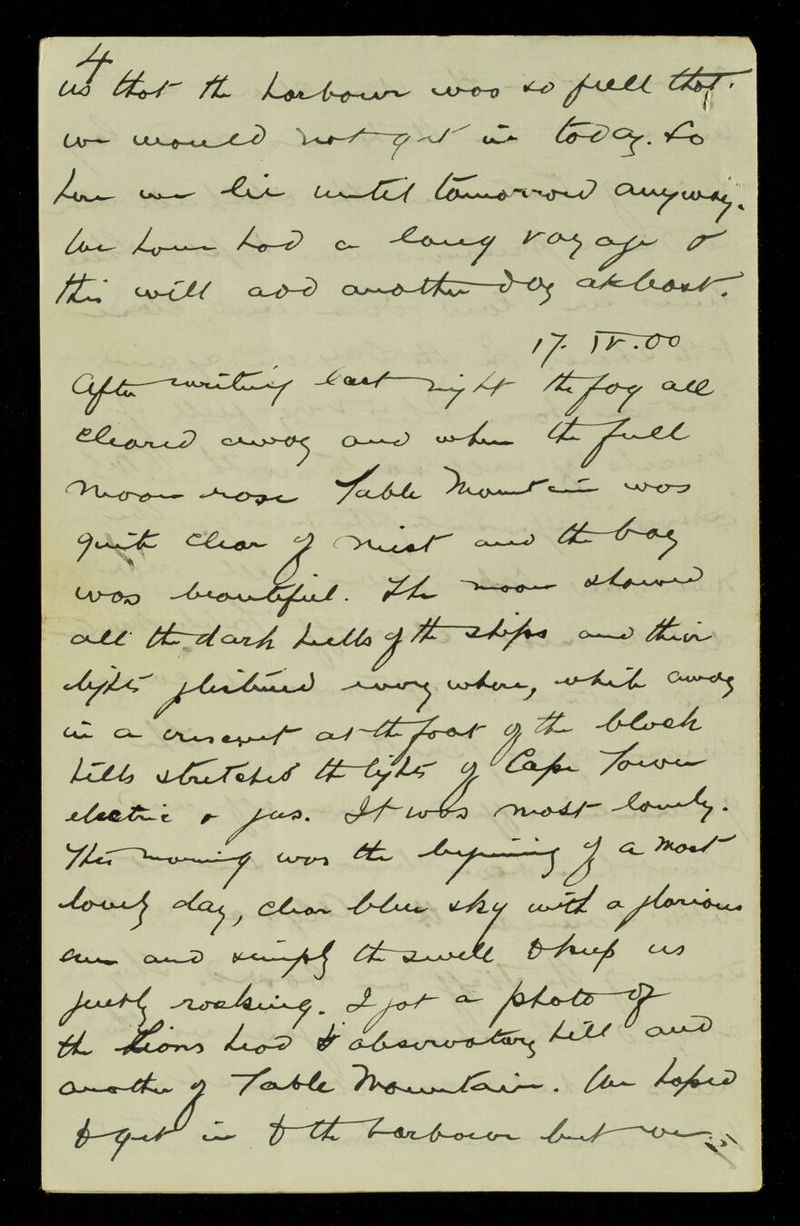 4
us that the harbour was so full that
we would not get in today. So
here we lie until tomorrow anyway.
We have had a long voyage &
this will add another day at least.
17. IV. 00
After writing last night the fog all
cleared away and when the full
moon rose Table Mountain was
quite clear of mist and the bay
was beautiful. The moon showed
all the dark hulls of the ships and their
lights glistened everywhere, while away
in a crescent at the foot of the black
hills stretched the lights of Cape Town
electric & gas. It was most lovely.
This morning was the beginning of a most
lovely day, clear blue sky with a glorious
sun and simply the swell to keep us
gently rocking. I got a photo of
the Lions head & observatory hill and
another of Table Mountain. We hoped
to get in to the harbour but we